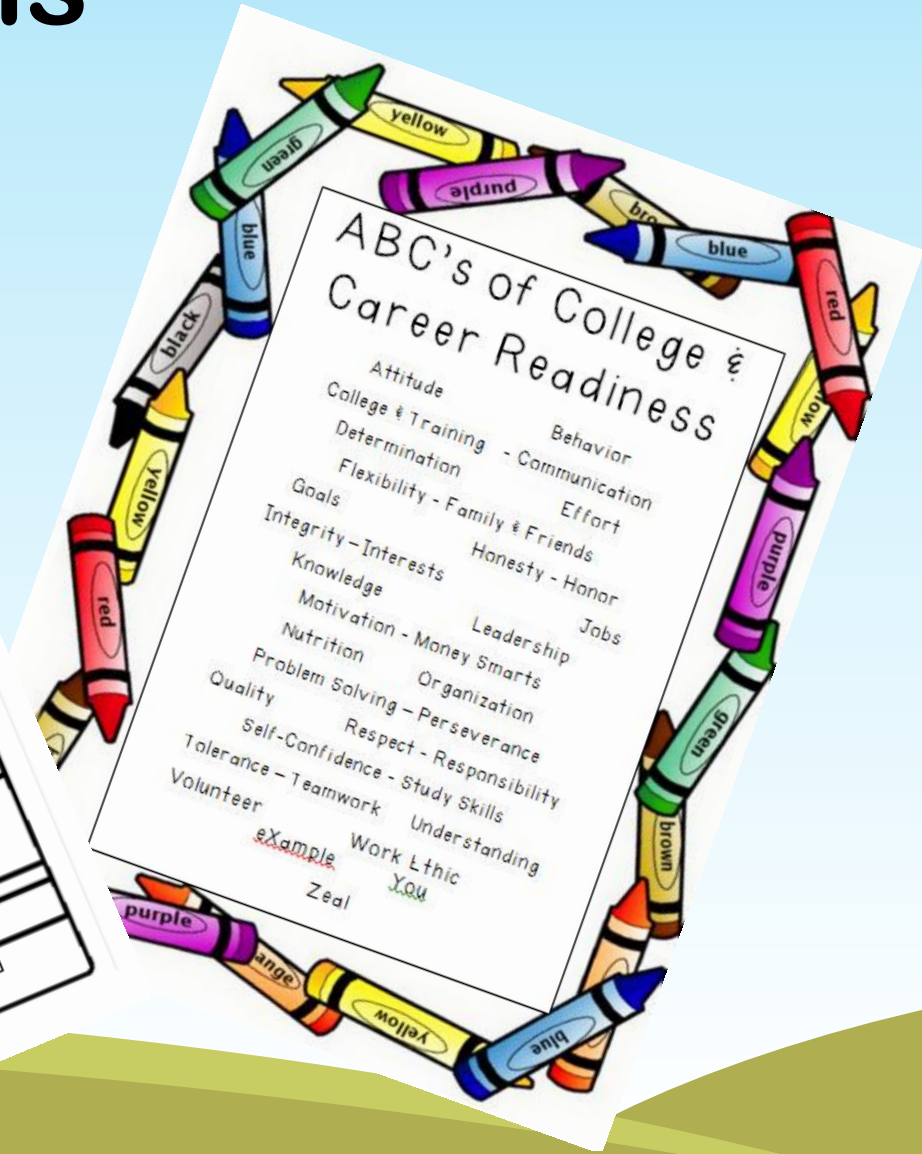 ABC's of College &
Career Readiness
Attitude
Behavior
College & Training - Communication
Determination
Effort
Flexibility - Family & Friends
Goals
Honesty - Honor
Integrity – Interests
Jobs
Knowledge
Leadership
Motivation - Money Smarts
Nutrition
Organization
Problem Solving – Perseverance
Quality
Respect - Responsibility
Self-Confidence - Study Skills
Tolerance – Teamwork
Understanding
Volunteer
Work Ethic
eXample
You
Zeal
green
yellow
purple
blue
red
blue
black
yellow
yellow
purple
red
green
brown
purple
yellow
blue